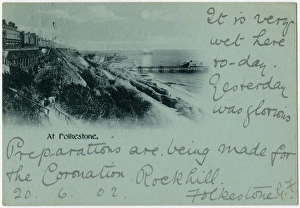 It is very
wet here
to-day.
Yesterday
was glorious
At Folkestone.
Preparations are being made for
the Coronation Rockhill.
20 6. 02. Folkestone